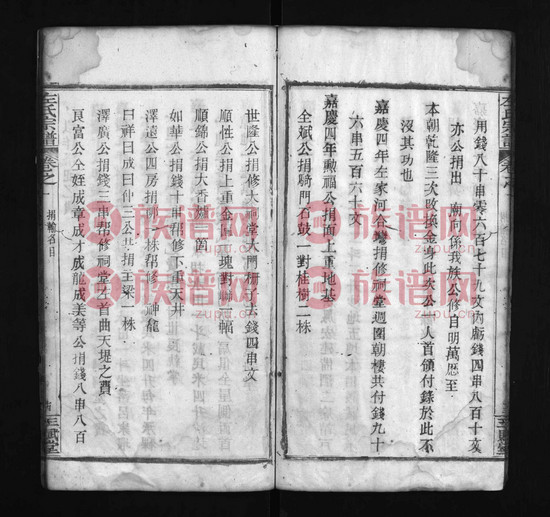 用錢八千串零六百七十九文內虧錢四串八百十文
亦公捐出 廟何係我族公修自明萬厯至
本朝乾隆三次改換金身此次公一人首領付錄於此不
沒其功也
嘉慶四年左家河合灣捐修祠堂週圍朝樓共付錢九十
六串五百六十文
嘉慶四年勲福公捐面上重地基
全斌公捐騎門石鼓一對桂樹二株
世隆公捐修大祠堂大門柵 去錢四串文
順性公捐上重金 塊對聯 幅
順錦公捐大香爐 個
如華公捐錢十串帮修下重天井
澤遠公四房捐 株帮修 神龍
曰祥曰成曰仲三公共捐正梁一株
澤廣公捐錢三串帮修祠堂左首曲天堤之費
艮富公仝姪成章成才成龍成美等公捐錢八串八百
左氏宗譜 卷之一 捐輸名目
三賦堂
族谱网
zupu.cn